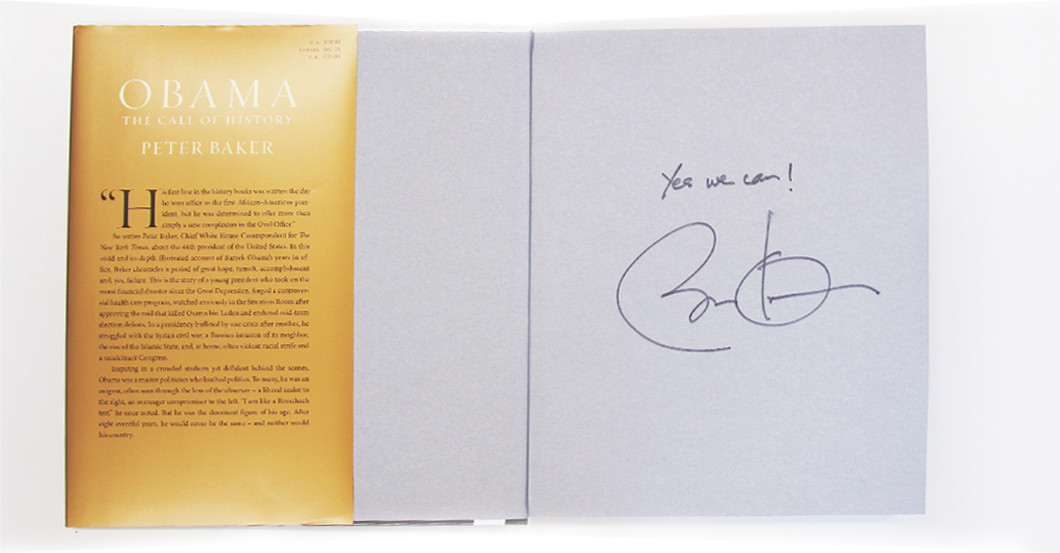 OBAMA
THE CALL OF HISTORY
PETER BAKER
“His first line in the history books was written the day
he won office as the first African-American pres-
ident, but he was determined to offer more than
simply a new complexion in the Oval Office.”
So writes Peter Baker, Chief White House Correspondent for The
New York Times, about the 44th president of the United States. In this
vivid and in-depth illustrated account of Barack Obama’s years in of-
fice, Baker chronicles a period of great hope, tumult, accomplishment
and, yes, failure. This is the story of a young president who took on the
worst financial disaster since the Great Depression, forged a controver-
sial health care program, watched anxiously in the Situation Room after
approving the raid that killed Osama bin Laden and endured mid-term
election defeats. In a presidency buffeted by one crisis after another, he
struggled with the Syrian civil war, a Russian invasion of its neighbor,
the rise of the Islamic State, and, at home, often violent racial strife and
a recalcitrant Congress.
Inspiring in a crowded stadium yet diffident behind the scenes,
Obama was a master politician who loathed politics. To many, he was an
enigma, often seen through the lens of the observer – a liberal zealot to
the right, an overeager compromiser to the left. “I am like a Rorschach
test,” he once noted. But he was the dominant figure of his age. After
eight eventful years, he would never be the same – and neither would
his country.
Yes we can!